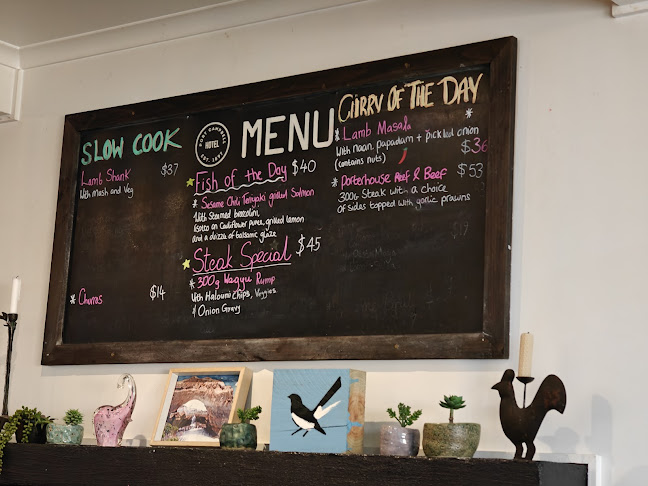 SLOW COOK
Lamb Shank $37
With Mash and Veg
* Churros $14
PORT CAMPBELL
HOTEL
EST.
MENU
Fish of the Day $40
* Sesame Chili Teriyaki grilled Salmon
With Steamed broccolini,
on Cauliflower puree, grilled lemon
and a drizza of balsamic glaze
Steak Special $45
* 300g Wagyu Rump
With Haloumi Chips, Veggies
& Onion Gravy
CURRY OF THE DAY
* Lamb Masala
With naan, papadam + pickled onion
(contains nuts) $36
* Porterhouse Reef & Beef $53
300g Steak with a choice
of sides topped with garlic prawns
$17